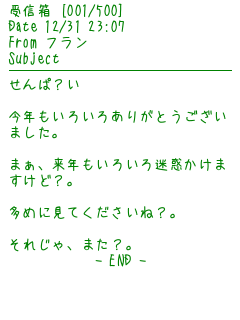 受信箱 [001/500]
Date 12/31 23:07
From フラン
Subject
せんぱ?い
今年もいろいろありがとうござい
ました。
まぁ、来年もいろいろ迷惑かけま
すけど?。
多めに見てくださいね?。
それじゃ、また?。
- END -